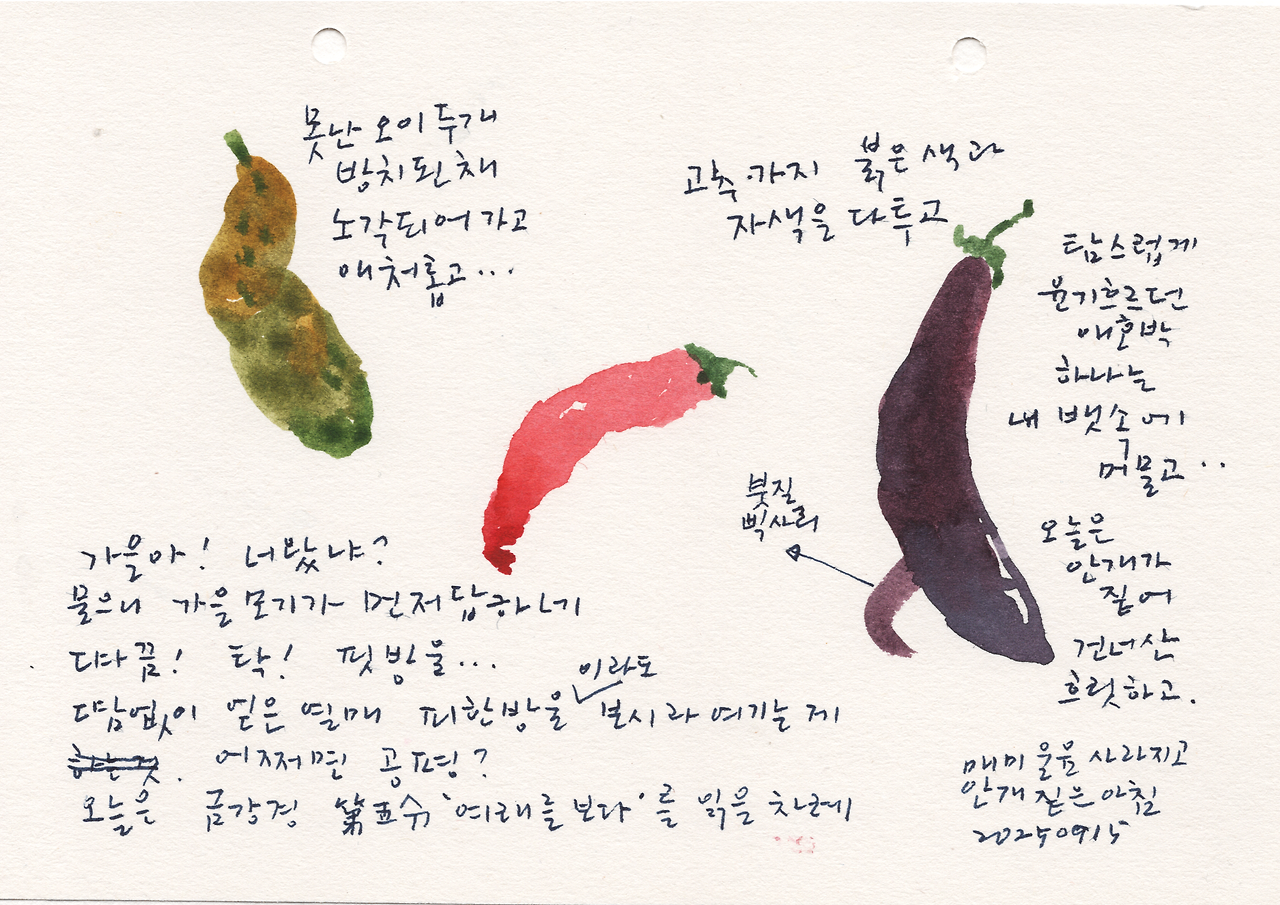 못난 오이 두개
방치된 채
노각되어 가고
애처롭고...
고추·가지 붉은 색과
자색을 다투고
탐스럽게
윤기흐르던
애호박
하나는
내 뱃속에
머물고..
붓질
삑사리
오늘은
안개가
짙어
건너산
흐릿하고.
가을아! 너봤냐?
물으니 가을 모기가 먼저 답하니
따끔! 탁! 핏방울...
땀없이 얻은 열매 피한방울 이라도 보시라 여기는 게
하는 것. 어쩌면 공평?
오늘은 금강경 第五숶 '여래를 보다'를 읽을 차례
매미 울음 사라지고
안개 짙은 아침
20250915